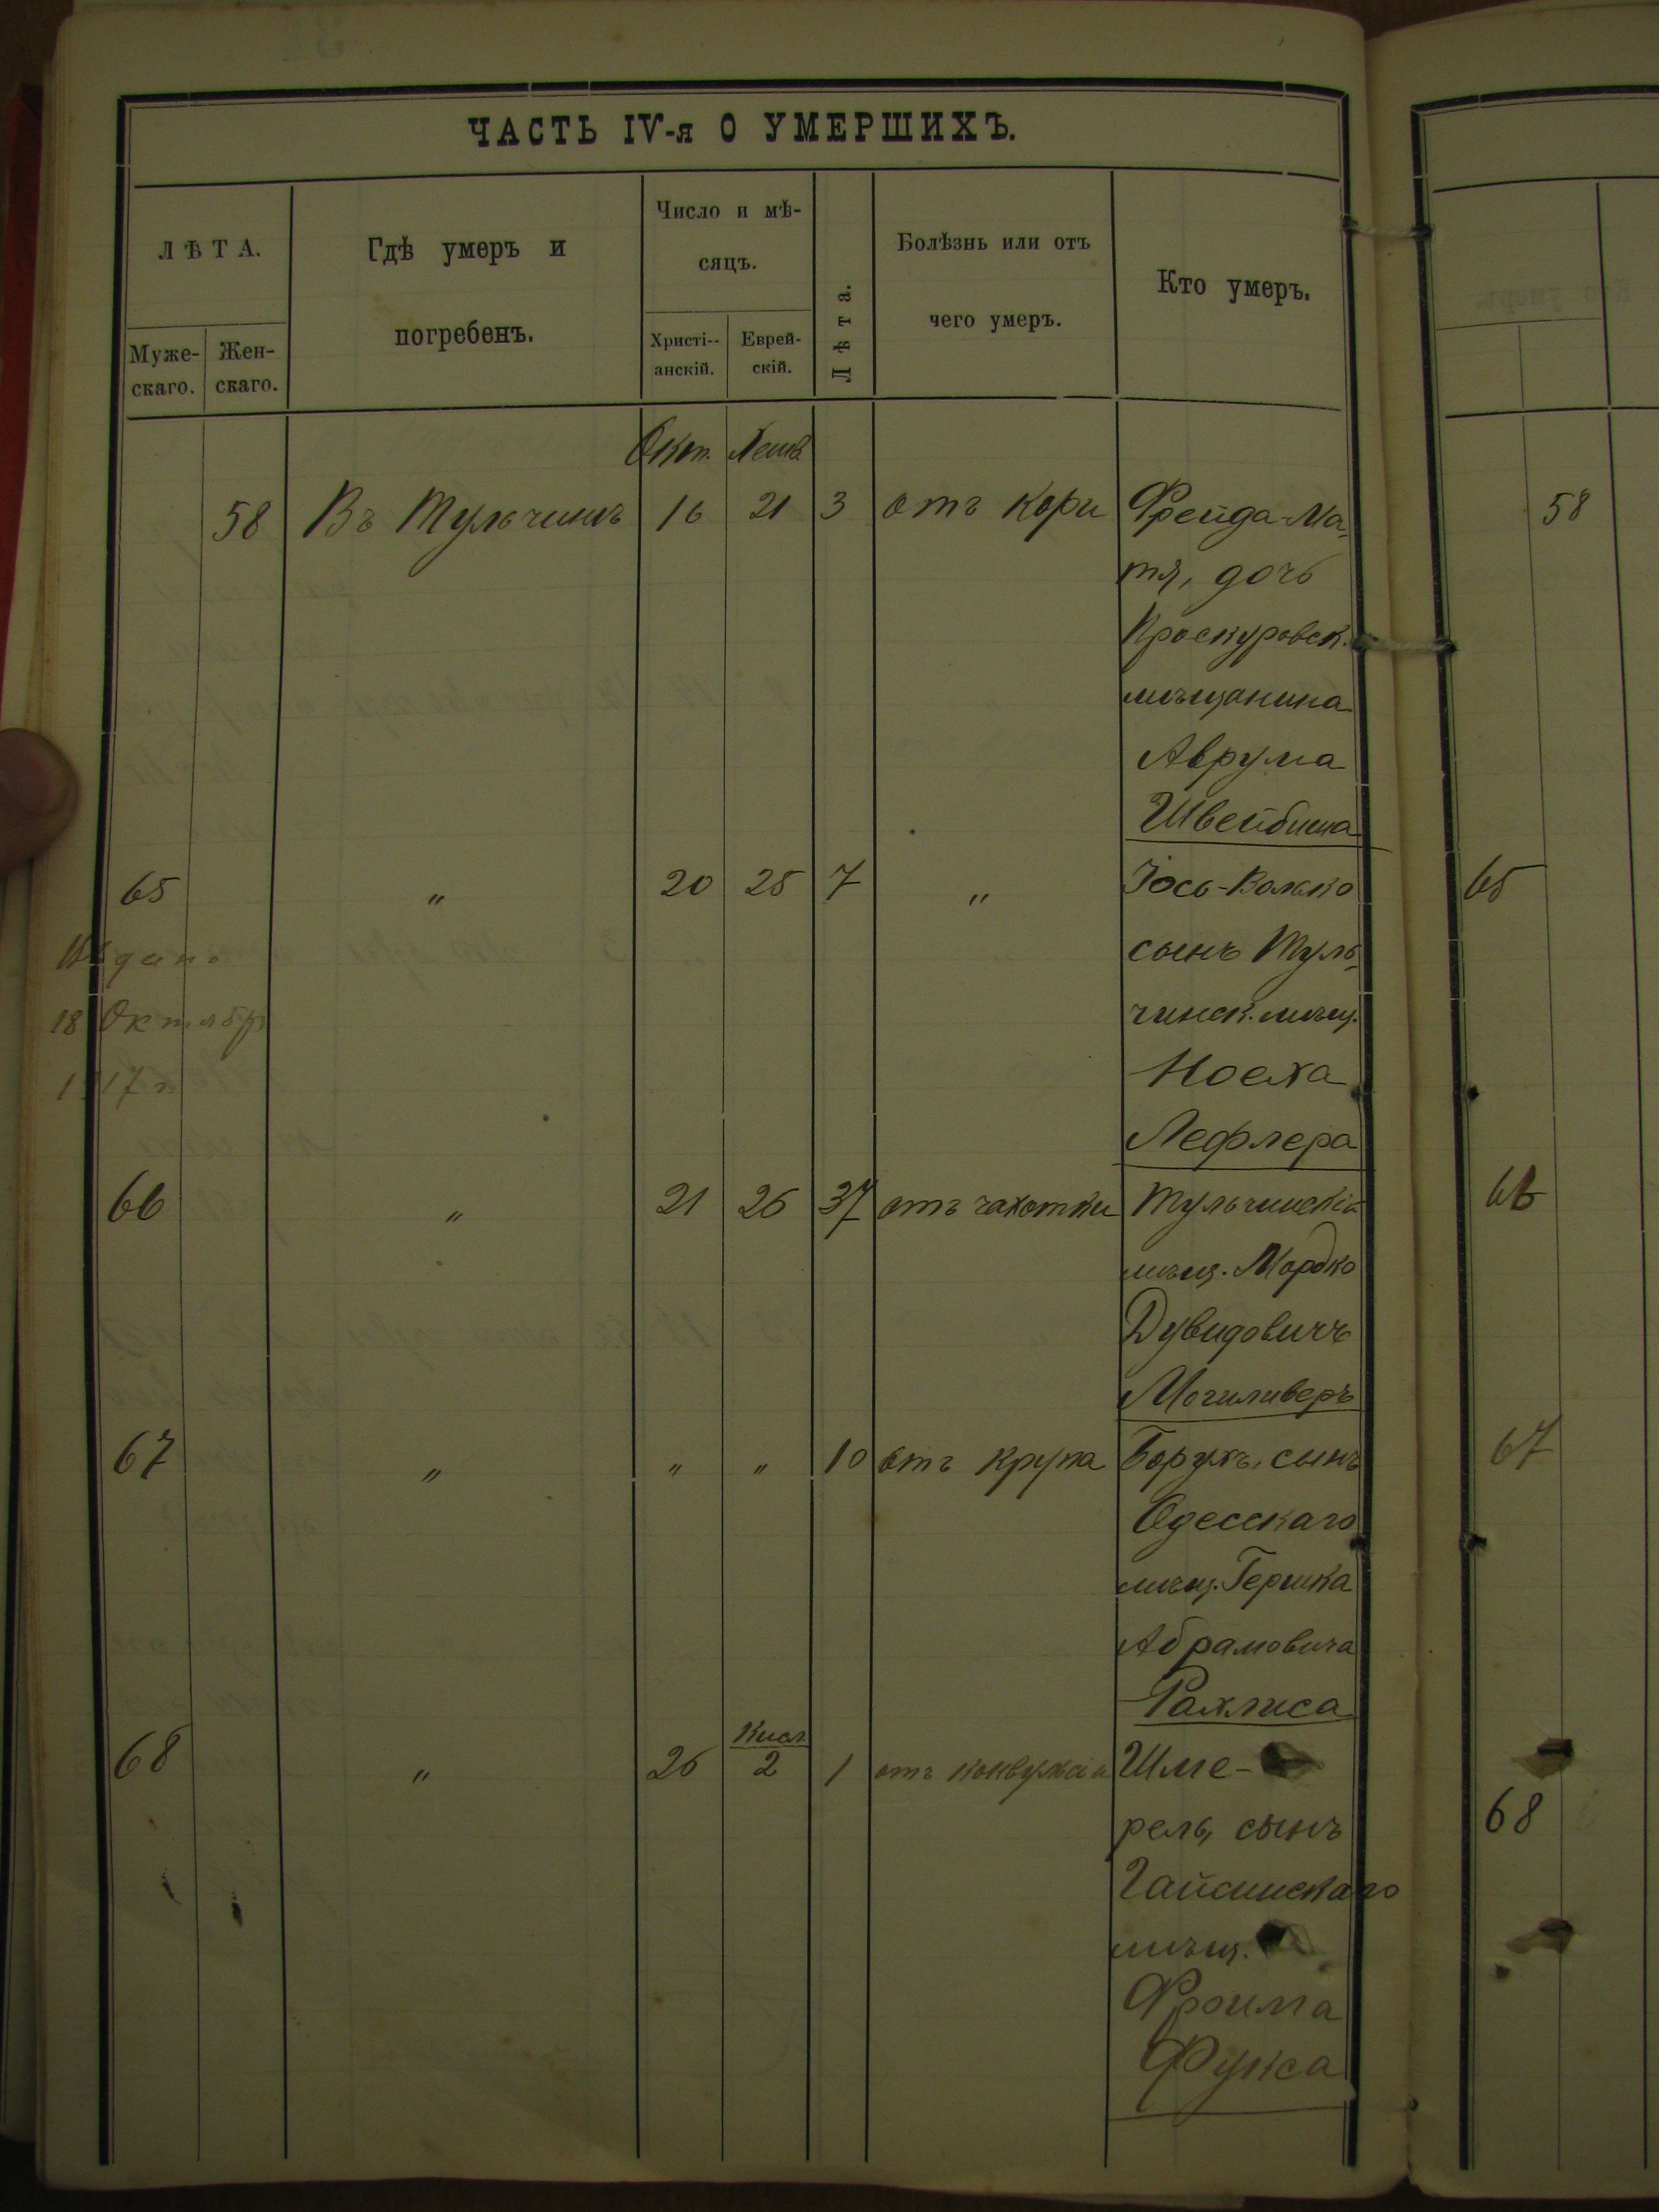 ЧАСТЬ IV-я О УМЕРШИХЪ.
ЛѢТА.
Мужескаго.
Женскаго.
Гдѣ умеръ и
погребенъ.
Число и мѣ-
сяцъ.
Христі--
анскій.
Еврей-
скій.
Лѣта.
Болѣзнь или отъ
чего умеръ.
Кто умеръ.
Окт. Хешв.
58 Въ Тульчинѣ 16 21 3 отъ кори Фрейда-Ма-
тя, дочь
Проскуровск.
мѣщанина
Аврума
Швейбиша
65 " 20 25 7 " Іось-Волько
сынъ Туль-
чинск. мѣщ.
Ноеха
Лефлера
Выдано
18 Октябр
1917 г.
66 " 21 26 37 отъ чахотки Тульчинскій
мѣщ. Мордко
Дувидовичъ
Могиливеръ
67 " " " 10 отъ крупа Борухъ, сынъ
Одесскаго
мѣщ. Гершка
Абрамовича
Рахлиса
Кисл.
68 " 26 2 1 отъ конвульсіи Шме-
рель, сынъ
Гайсинскаго
мѣщ.
Фроима
Фукса
58
65
66
67
68